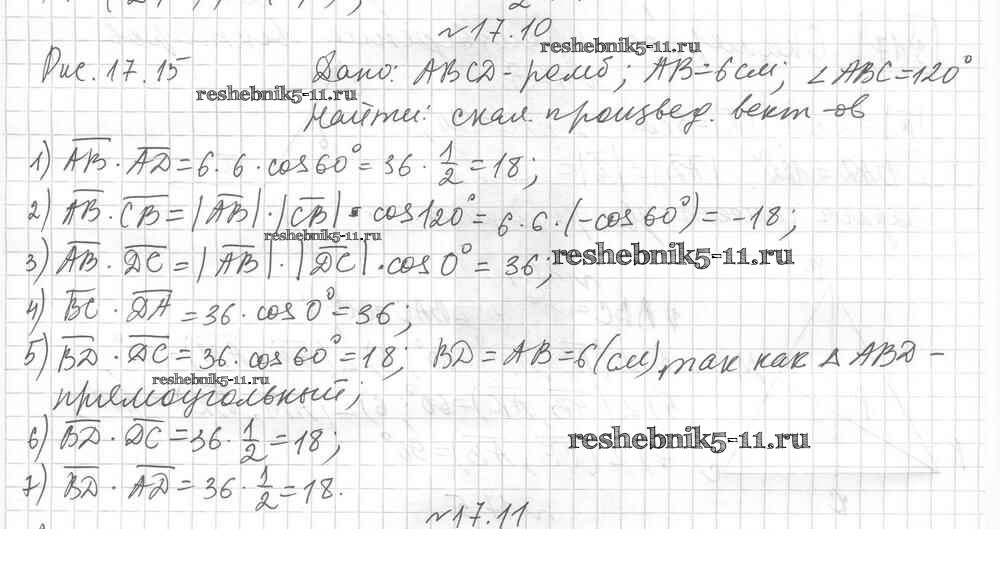 №17.10
reshebnik5-11.ru
Рис. 17.15 Дано: ABCD - ромб; AB=6см; ∠ABC=120°
reshebnik5-11.ru
Найти: скал. произвед. вект-ов
1) AB · AD = 6 · 6 · cos60° = 36 · 1/2 = 18;
2) AB · CB = |AB| · |CB| · cos120° = 6 · 6 · (-cos60°) = -18;
reshebnik5-11.ru
3) AB · DC = |AB| · |DC| · cos0° = 36;
reshebnik5-11.ru
4) BC · DA = 36 · cos0° = 36;
5) BD · DC = 36 · cos60° = 18; BD = AB = 6(см), так как △ABD -
reshebnik5-11.ru
прямоугольный;
6) BD · DC = 36 · 1/2 = 18;
reshebnik5-11.ru
7) BD · AD = 36 · 1/2 = 18.
№17.11